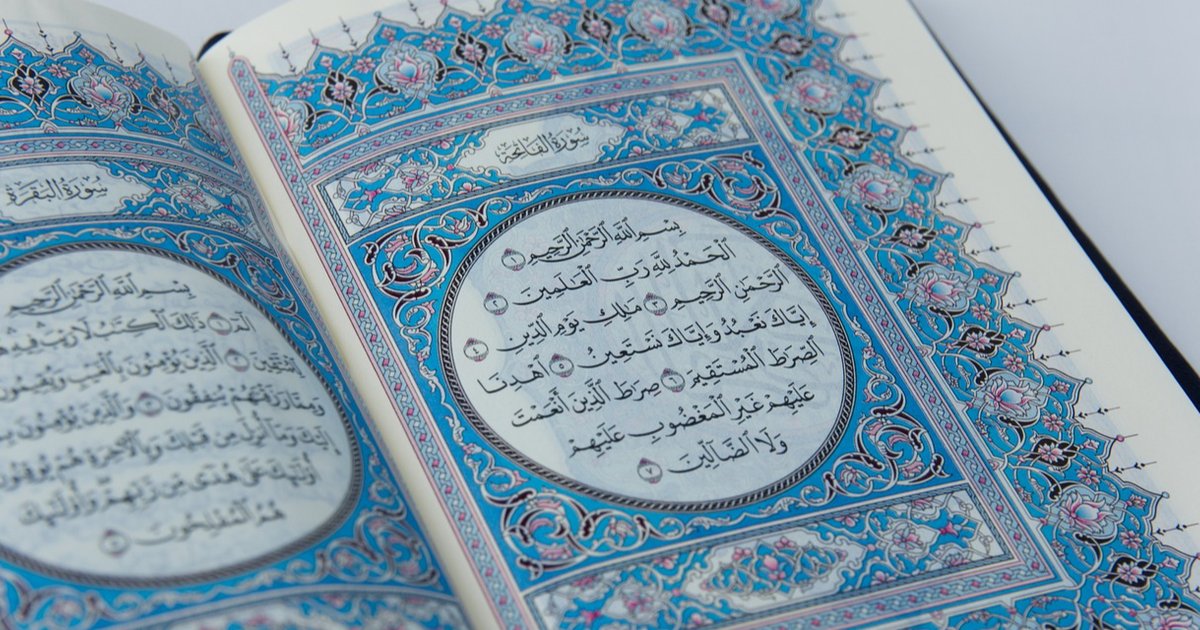 سُورَةُ الفَاتِحَةِ
بِسۡمِ ٱللَّهِ ٱلرَّحۡمَٰنِ ٱلرَّحِيمِ ١
ٱلۡحَمۡدُ لِلَّهِ رَبِّ ٱلۡعَٰلَمِينَ ٢
ٱلرَّحۡمَٰنِ ٱلرَّحِيمِ ٣ مَٰلِكِ يَوۡمِ ٱلدِّينِ ٤
إِيَّاكَ نَعۡبُدُ وَإِيَّاكَ نَسۡتَعِينُ ٥ ٱهۡدِنَا
ٱلصِّرَٰطَ ٱلۡمُسۡتَقِيمَ ٦ صِرَٰطَ ٱلَّذِينَ أَنۡعَمۡتَ
عَلَيۡهِمۡ غَيۡرِ ٱلۡمَغۡضُوبِ عَلَيۡهِمۡ
وَلَا ٱلضَّآلِّينَ ٧
سُورَةُ البَقَرَةِ
بِسۡمِ ٱللَّهِ ٱلرَّحۡمَٰنِ ٱلرَّحِيمِ
الٓمٓ ١ ذَٰلِكَ ٱلۡكِتَٰبُ لَا رَيۡبَۛ فِيهِۛ
لِّلۡمُتَّقِينَ ٢ ٱلَّذِينَ يُؤۡمِنُونَ بِٱلۡغَيۡبِ وَيُقِيمُونَ
وَمِمَّا رَزَقۡنَٰهُمۡ يُنفِقُونَ ٣ وَٱلَّذِينَ يُؤۡمِنُونَ
إِلَيۡكَ وَمَآ أُنزِلَ مِن قَبۡلِكَ وَبِٱلۡأٓخِرَةِ هُمۡ يُوقِنُونَ
أُوْلَٰٓئِكَ عَلَىٰ هُدٗى مِّن رَّبِّهِمۡۖ وَأُوْلَٰٓئِكَ
هُمُ ٱلۡمُفۡلِحُونَ ٥